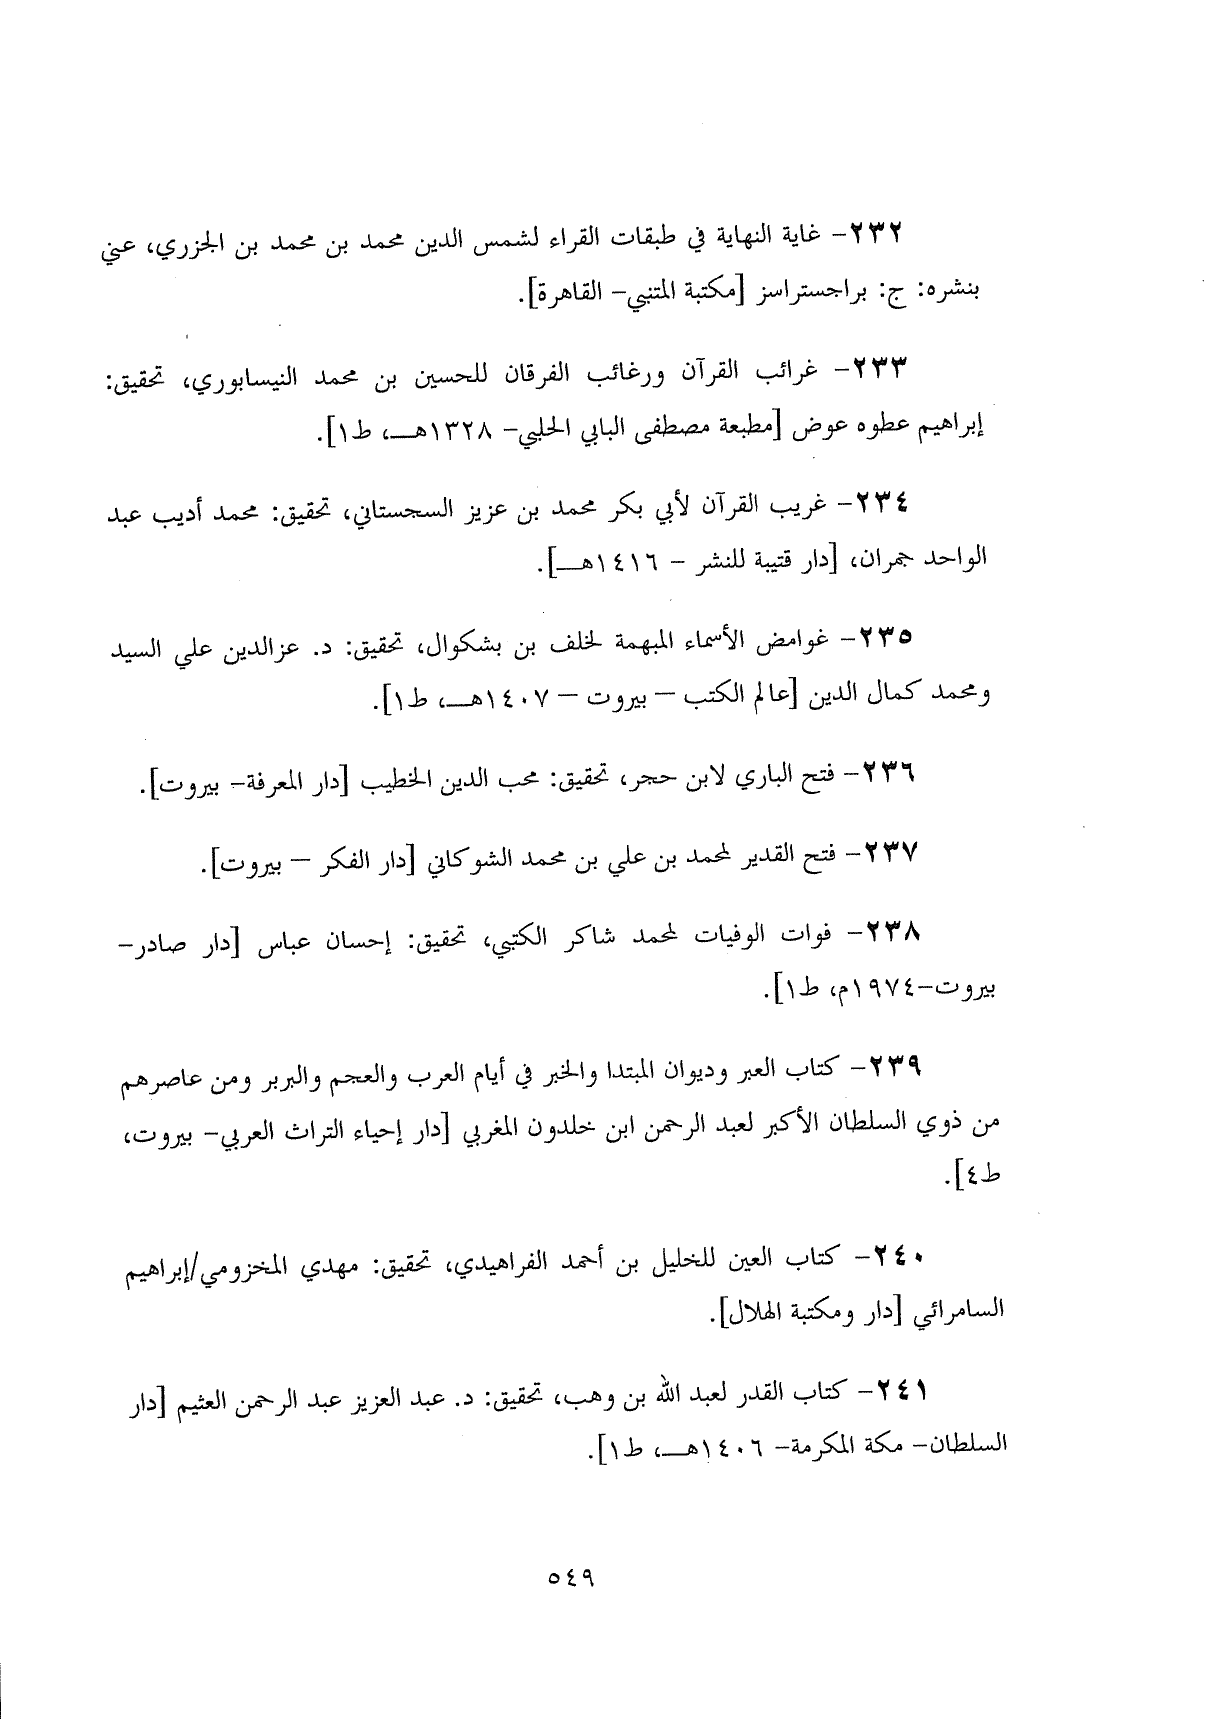 ٢٣٢- غاية النهاية في طبقات القراء لشمس الدين محمد بن محمد بن الجزري، عني
بنشره: ج: براجستراسز [مكتبة المتنبي- القاهرة].
٢٣٣- غرائب القرآن ورغائب الفرقان للحسين بن محمد النيسابوري، تحقيق:
إبراهيم عطوه عوض [مطبعة مصطفى البابي الحلبي- ١٣٢٨هـ، ط١].
٢٣٤- غريب القرآن لأبي بكر محمد بن عزيز السجستاني، تحقيق: محمد أديب عبد
الواحد جمران، [دار قتيبة للنشر – ١٤١٦هـ].
٢٣٥- غوامض الأسماء المبهمة لخلف بن بشكوال، تحقيق: د. عزالدين علي السيد
ومحمد كمال الدين [عالم الكتب – بيروت – ١٤٠٧هـ، ط١].
٢٣٦- فتح الباري لابن حجر، تحقيق: محب الدين الخطيب [دار المعرفة- بيروت].
٢٣٧- فتح القدير لمحمد بن علي بن محمد الشوكاني [دار الفكر – بيروت].
٢٣٨- فوات الوفيات لمحمد شاكر الكتبي، تحقيق: إحسان عباس [دار صادر-
بيروت-١٩٧٤م، ط١].
٢٣٩- كتاب العبر وديوان المبتدا والخبر في أيام العرب والعجم والبربر ومن عاصرهم
من ذوي السلطان الأكبر لعبد الرحمن ابن خلدون المغربي [دار إحياء التراث العربي- بيروت،
ط٤].
٢٤٠- كتاب العين للخليل بن أحمد الفراهيدي، تحقيق: مهدي المخزومي/إبراهيم
السامرائي [دار ومكتبة الهلال].
٢٤١- كتاب القدر لعبد الله بن وهب، تحقيق: د. عبد العزيز عبد الرحمن العثيم [دار
السلطان- مكة المكرمة- ١٤٠٦هـ، ط١].
٥٤٩